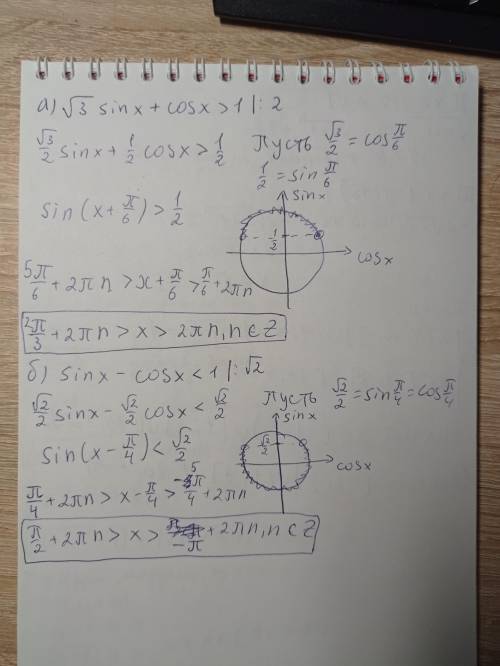 а) √3 sinx + cosx > 1 |: 2
√3/2 sinx + 1/2 cosx > 1/2
Пусть √3/2 = cos π/6
1/2 = sin π/6
sin(x + π/6) > 1/2
sinx
1/2
cosx
5π/6 + 2πn > x + π/6 > π/6 + 2πn
2π/3 + 2πn > x > 2πn, n ∈ Z
б) sinx - cosx < 1 |: √2
√2/2 sinx - √2/2 cosx < √2/2
Пусть √2/2 = sin π/4 = cos π/4
sin(x - π/4) < √2/2
sinx
√2/2
cosx
π/4 + 2πn > x - π/4 > -5π/4 + 2πn
π/2 + 2πn > x > -π + 2πn, n ∈ Z